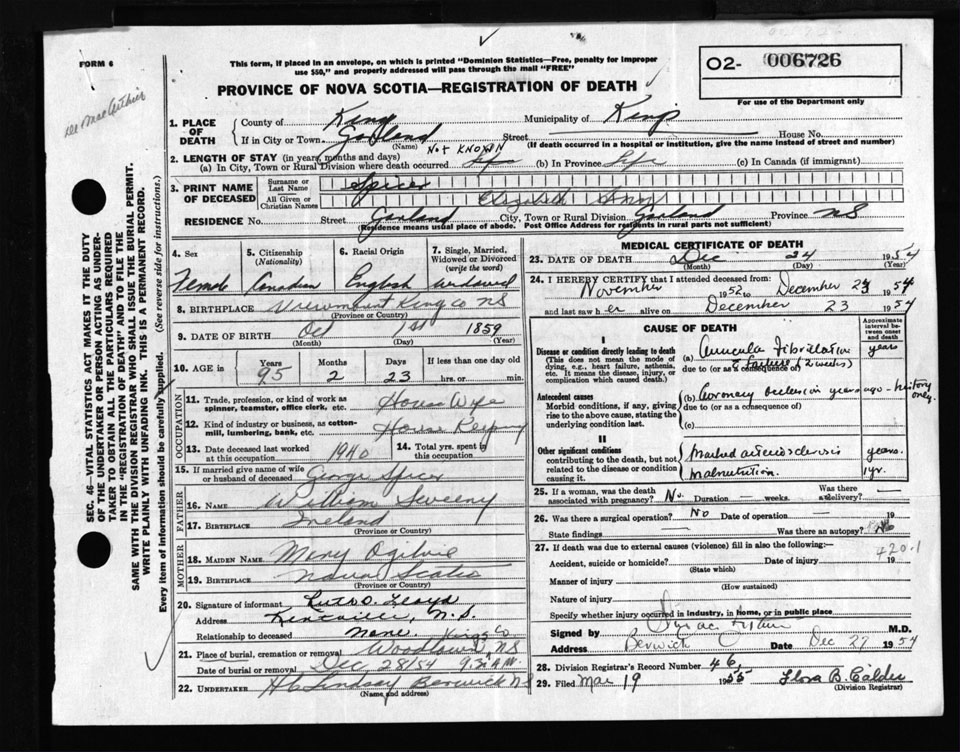 FORM 6
This form, if placed in an envelope, on which is printed "Dominion Statistics—Free, penalty for improper
use $50," and properly addressed will pass through the mail "FREE"
02- 006726
For use of the Department only
PROVINCE OF NOVA SCOTIA—REGISTRATION OF DEATH
1. PLACE OF DEATH
County of Kings Municipality of Kings
If in City or Town Garland Street House No.
(Name) (If death occurred in a hospital or institution, give the name instead of street and number)
NOT KNOWN
2. LENGTH OF STAY (in years, months and days)
(a) In City, Town or Rural Division where death occurred Life (b) In Province Life (c) In Canada (if immigrant)
3. PRINT NAME OF DECEASED
Surname or Last Name Spicer
All Given or Christian Names Elizabeth Ann
RESIDENCE No. Street Garland City, Town or Rural Division Garland Province NS
(Residence means usual place of abode. Post Office Addresses for residents in rural parts not sufficient)
4. Sex Female
5. Citizenship (Nationality) Canadian
6. Racial Origin English
7. Single, Married, Widowed or Divorced (write the word) Widowed
8. BIRTHPLACE Viewmount Kings Co NS
(Province or Country)
9. DATE OF BIRTH Oct 1st 1859
(Month) (Day) (Year)
10. AGE in Years 95 Months 2 Days 23 If less than one day old hrs. or min.
OCCUPATION
11. Trade, profession, or kind of work as spinner, teamster, office clerk, etc. House Wife
12. Kind of industry or business, as cotton-mill, lumbering, bank, etc. House Keeping
13. Date deceased last worked at this occupation 1940
14. Total yrs. spent in this occupation
15. If married give name of wife or husband of deceased George Spicer
FATHER
16. NAME William Sweeny
17. BIRTHPLACE Ireland
(Province or Country)
MOTHER
18. MAIDEN NAME Mary Ogilvie
19. BIRTHPLACE Nova Scotia
(Province or Country)
20. Signature of informant Lloyd
Address Kentville, N.S.
Relationship to deceased None
Kings Co
21. Place of burial, cremation or removal Woodlawn, NS
Date of burial or removal Dec 28/54
22. UNDERTAKER H C Lindsay Berwick NS
(Name and address)
MEDICAL CERTIFICATE OF DEATH
23. DATE OF DEATH Dec 24 1954
(Month) (Day) (Year)
24. I HEREBY CERTIFY that I attended deceased from:
November 1952 to December 23 1954
and last saw her alive on December 23 1954
CAUSE OF DEATH
Approximate interval between onset and death
I
Disease or condition directly leading to death
(This does not mean the mode of dying, e.g., heart failure, asthenia, etc. It means the disease, injury, or complication which caused death.)
(a) Auricular Fibrillation years
& failure (2 weeks)
due to (or as a consequence of)
Antecedent causes
Morbid conditions, if any, giving rise to the above cause, stating the underlying condition last.
(b) Coronary occlusion years ago - history only.
due to (or as a consequence of)
(c)
II
Other significant conditions
contributing to the death, but not related to the disease or condition causing it.
Marked arteriosclerosis years.
Malnutrition. 1 yr.
25. If a woman, was the death associated with pregnancy? No. Duration — weeks. Was there a delivery? —
26. Was there a surgical operation? No Date of operation — 19
State findings Was there an autopsy? No
27. If death was due to external causes (violence) fill in also the following:—
420.1
Accident, suicide or homicide? Date of injury 19
(State which)
Manner of injury
(How sustained)
Nature of injury
Specify whether injury occurred in industry, in home, or in public place
Signed by M.D.
Address Berwick Date Dec 27 1954
28. Division Registrar's Record Number 46
29. Filed Mar 19 1955 Flora B. Calder
(Division Registrar)
SEC. 46—VITAL STATISTICS ACT MAKES IT THE DUTY
OF THE UNDERTAKER OR PERSON ACTING AS UNDER-
TAKER TO OBTAIN ALL THE PARTICULARS REQUIRED
IN THE "REGISTRATION OF DEATH" AND TO FILE THE
SAME WITH THE DIVISION REGISTRAR WHO SHALL ISSUE THE BURIAL PERMIT.
WRITE PLAINLY WITH UNFADING INK. THIS IS A PERMANENT RECORD.
Every item of information should be carefully supplied. (See reverse side for instructions.)